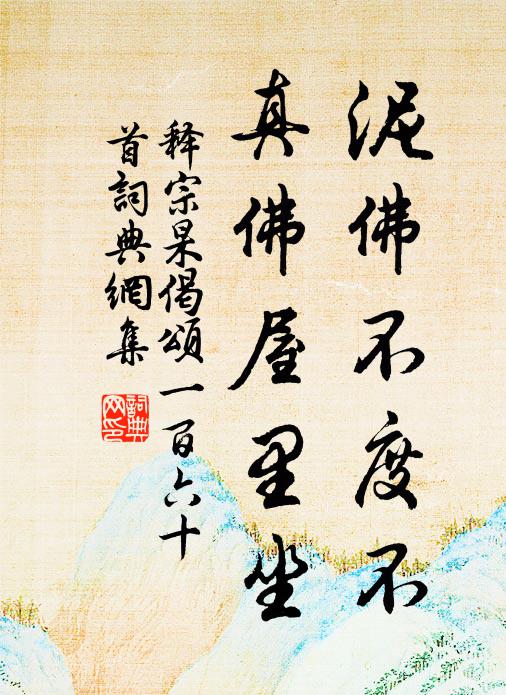 泥佛不度不
真佛屋里坐
释宗杲偈頌一百六十
首詞典網集
詞典
网印